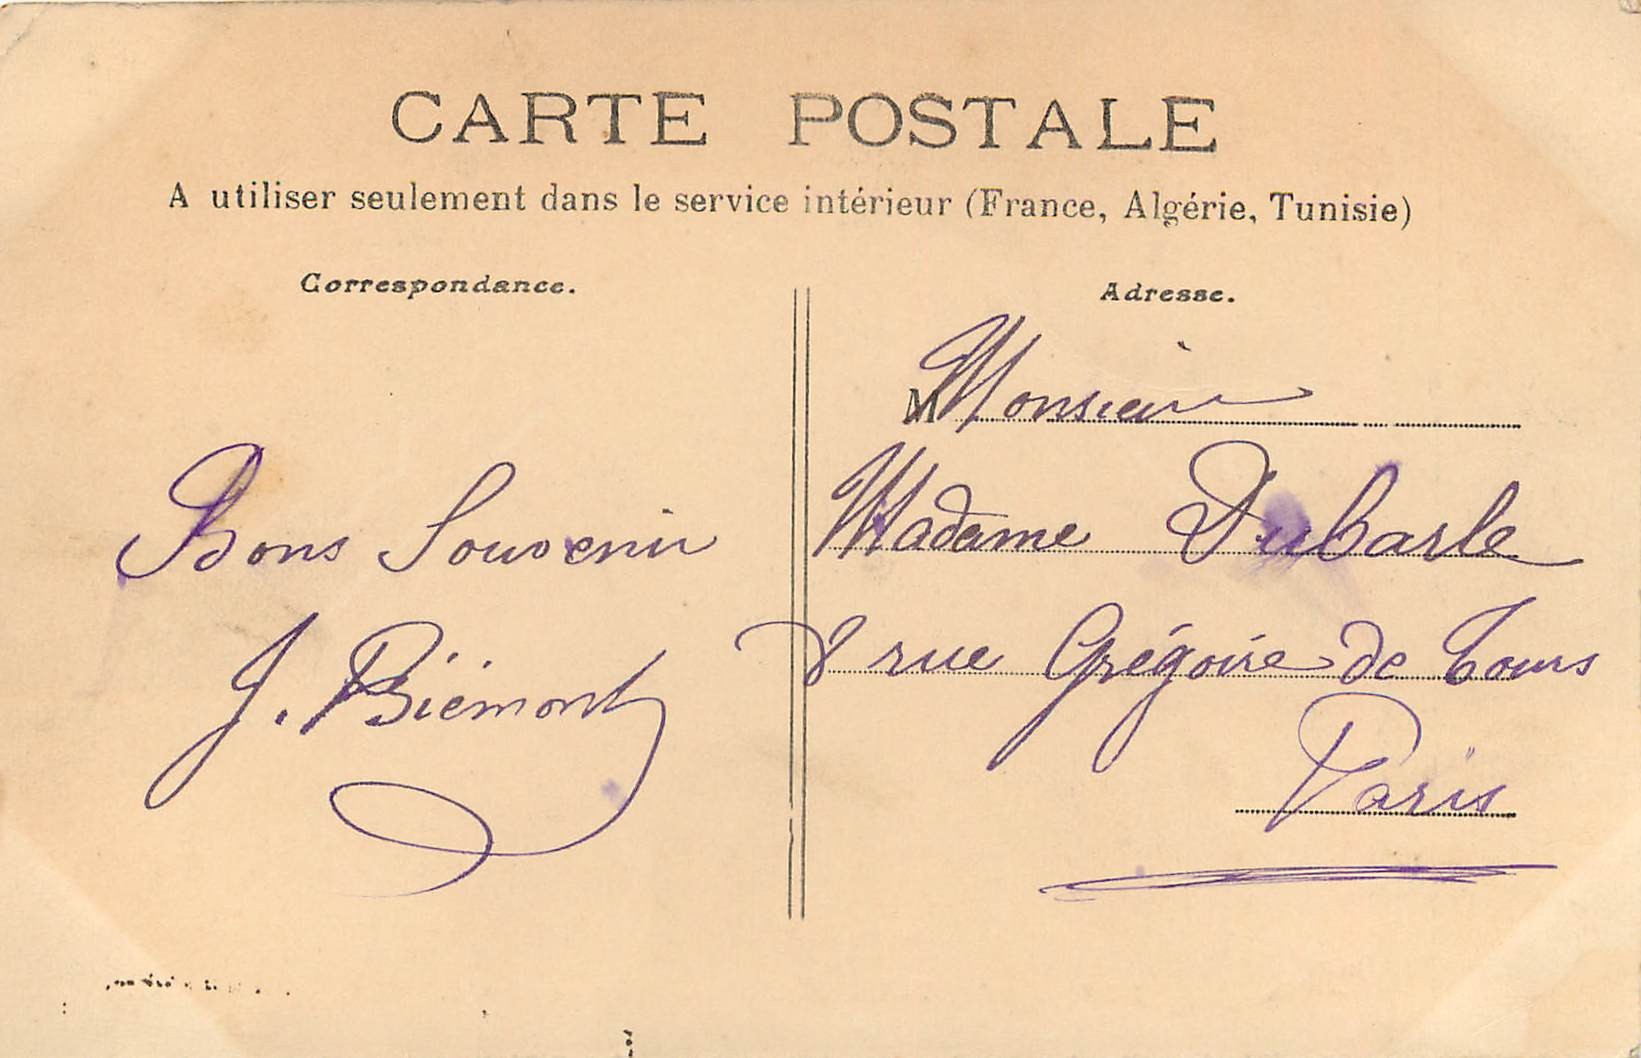 CARTE POSTALE
A utiliser seulement dans le service intérieur (France, Algérie, Tunisie)
Correspondance.
Bons Souvenir
J. Biémont
Adresse.
M Monsieur
Madame Dubarle
8 rue Grégoire de Tours
Paris